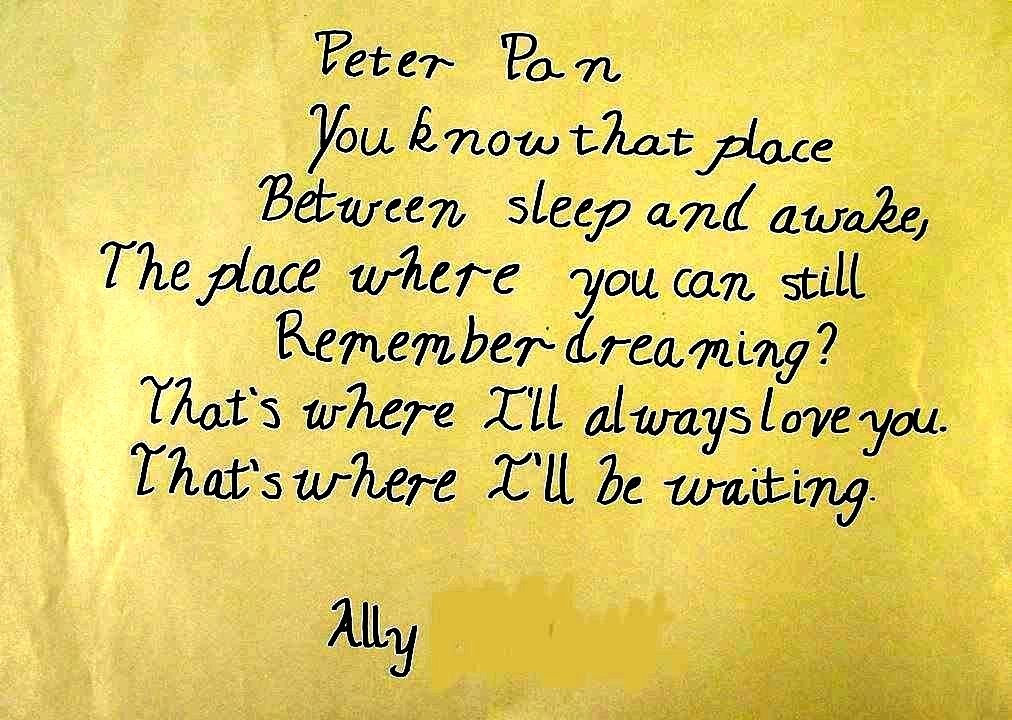 Peter Pan
You know that place
Between sleep and awake,
The place where you can still
Remember dreaming?
That's where I'll always love you.
That's where I'll be waiting.
Ally